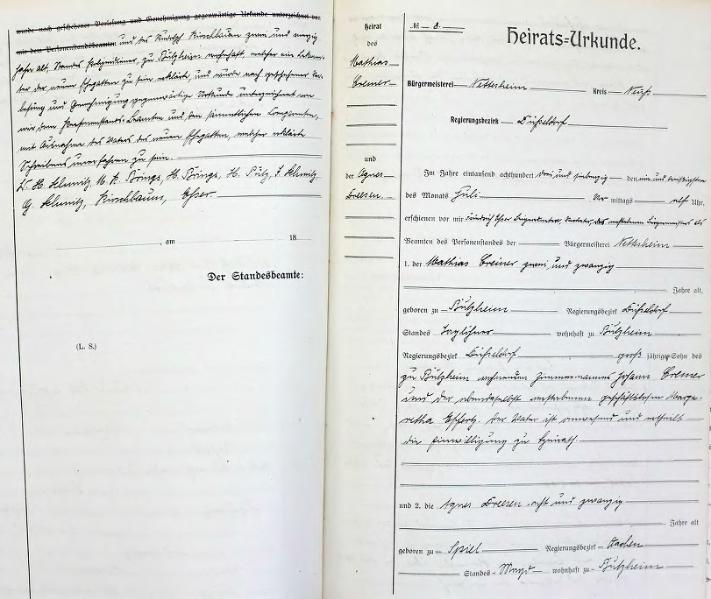 wurde nach geschehener Vorlesung und Genehmigung gegenwärtige Urkunde unterzeichnet von
mir dem Personenstandsbeamten und des Rudolph Kirschbaum zwei und
Jahre alt, Standes Polizeidiener, zu Bützheim wohnhaft, welcher ein Bekann-
ter der neuen Ehegatten zu sein erklärte, und wurde nach geschehener Vor-
lesung und Genehmigung gegenwärtige Urkunde unterzeichnet von
mir dem Personenstands-Beamten und den sämmtlichen Comparenten,
mit Ausnahme des Vaters des neuen Ehegatten, welcher erklärte
Schreibens unerfahren zu sein.
H. Pütz, Schmitz
G. Schmitz, Kirschbaum, Esser
am 18
Der Standesbeamte:
(L. S.)
Heirat
des
Mathias
Cremer
und
der Agnes
Dreesen
№ 8.
Heirats-Urkunde.
Bürgermeisterei Nettesheim Kreis Neuß
Regierungsbezirk Düsseldorf
Im Jahre eintausend achthundert drei und siebenzig den
des Monats Juli Vor mittags Uhr,
erschienen vor mir Esser Beigeordneter, des Bürgermeisters als
Beamten des Personenstandes der Bürgermeisterei Nettesheim
1. der Mathias Cremer zwei und zwanzig
Jahre alt,
geboren zu Bützheim Regierungsbezirk Düsseldorf
Standes Taglöhner wohnhaft zu Bützheim
Regierungsbezirk Düsseldorf groß jähriger Sohn des
zu Bützheim wohnenden Zimmermannes Johann Cremer
und der ebendaselbst verstorbenen geschäftslosen Marga-
retha Der Vater ist anwesend und ertheilt
die Einwilligung zu Heirath
und 2. die Agnes Dreesen acht und zwanzig
Jahre alt
geboren zu Spiel Regierungsbezirk Aachen
Standes Magd wohnhaft zu Bützheim